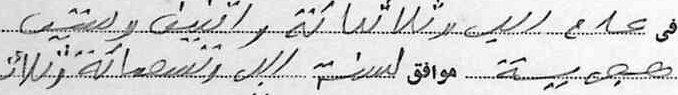 في عام الف وثلاثمائة واثنين وستين
هجرية موافق لسنة الف وتسعمائة وثلاث